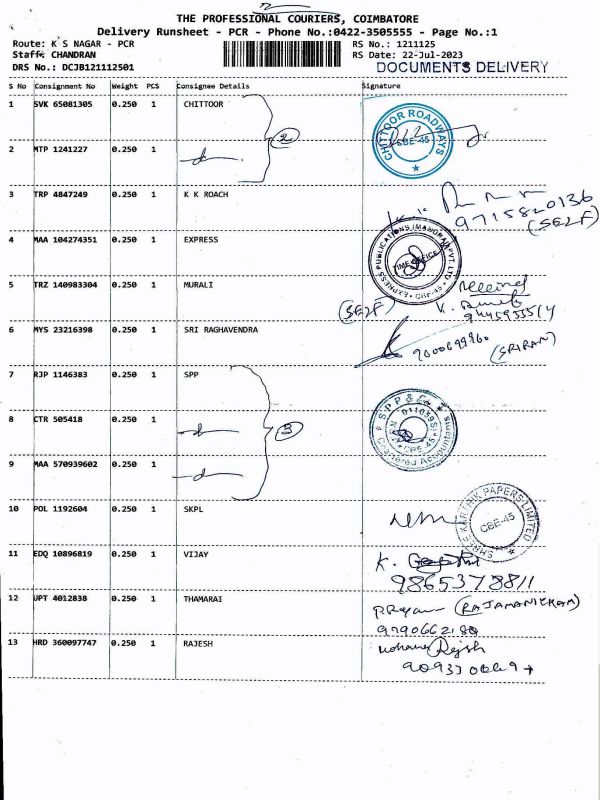 2
THE PROFESSIONAL COURIERS, COIMBATORE
Delivery Runsheet - PCR - Phone No.:0422-3505555 - Page No.:1
Route: K S NAGAR - PCR RS No.: 1211125
Staff: CHANDRAN RS Date: 22-Jul-2023
DRS No.: DCJB121112501 DOCUMENTS DELIVERY
S No Consignment No Weight PCS Consignee Details Signature
1 SVK 65081305 0.250 1 CHITTOOR
CHITTOOR ROADWAYS CBE-45
2 MTP 1241227 0.250 1
2
3 TRP 4847249 0.250 1 K K ROACH
9715820136
(SELF)
4 MAA 104274351 0.250 1 EXPRESS
EXPRESS PUBLICATIONS (MADURAI) PVT. LTD TIME OFFICE CBE-45
5 TRZ 140983304 0.250 1 MURALI
(SELF)
6 MYS 23216398 0.250 1 SRI RAGHAVENDRA
(SRIRAM)
7 RJP 1146383 0.250 1 SPP
8 CTR 505418 0.250 1
3
S P P & Co. Chartered Accountants CBE-45
9 MAA 570939602 0.250 1
10 POL 1192604 0.250 1 SKPL
SHREE KARTHIK PAPERS LIMITED CBE-45
11 EDQ 10896819 0.250 1 VIJAY
K.
9865378811
12 UPT 4012838 0.250 1 THAMARAI
(RAJAMANICKAM)
13 HRD 360097747 0.250 1 RAJESH